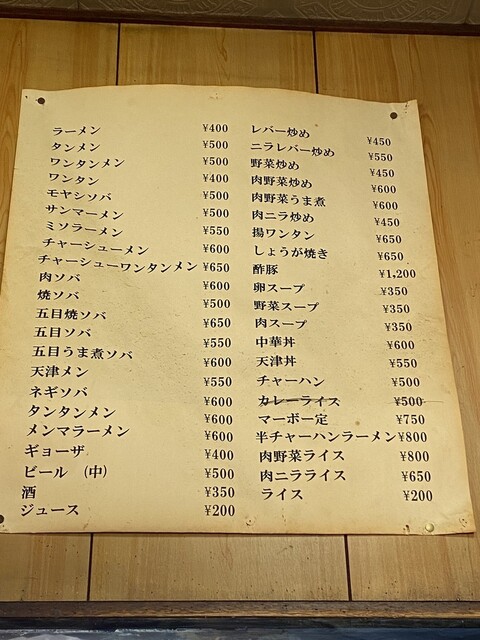 ラーメン ¥400
タンメン ¥500
ワンタンメン ¥500
ワンタン ¥400
モヤシソバ ¥500
サンマーメン ¥500
ミソラーメン ¥550
チャーシューメン ¥600
チャーシューワンタンメン ¥650
肉ソバ ¥600
焼ソバ ¥500
五目焼ソバ ¥650
五目ソバ ¥550
五目うま煮ソバ ¥600
天津メン ¥550
ネギソバ ¥600
タンタンメン ¥600
メンマラーメン ¥600
ギョーザ ¥400
ビール (中) ¥500
酒 ¥350
ジュース ¥200
レバー炒め ¥450
ニラレバー炒め ¥550
野菜炒め ¥450
肉野菜炒め ¥600
肉野菜うま煮 ¥600
肉ニラ炒め ¥450
揚ワンタン ¥650
しょうが焼き ¥650
酢豚 ¥1,200
卵スープ ¥350
野菜スープ ¥350
肉スープ ¥350
中華丼 ¥600
天津丼 ¥550
チャーハン ¥500
カレーライス ¥500
マーボー定 ¥750
半チャーハンラーメン ¥800
肉野菜ライス ¥800
肉ニラライス ¥650
ライス ¥200